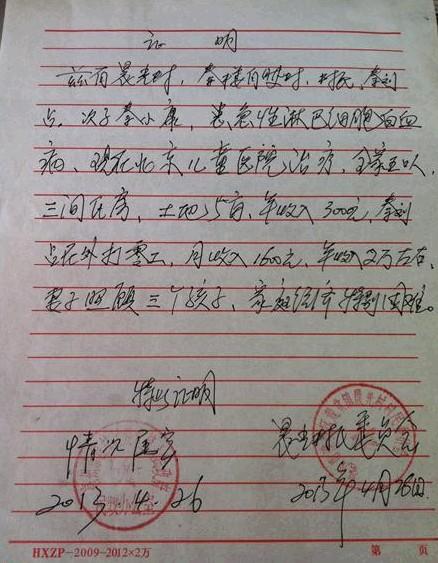 证 明
兹有晨光村,秦楼自然村,村民,秦刘
占。次子秦小康,患急性淋巴细胞白血
病,现在北京儿童医院治疗,全家五口人,
三间瓦房,土地15亩,年收入3000元,秦刘
占在外打零工,月收入1600元,年收入2万左右,
妻子照顾三个孩子,家庭经济特别困难。
特此证明
情况属实
2013.4.26
晨光村民委员会
2013年4月26日
HXZP-2009-2012×2万
第 页